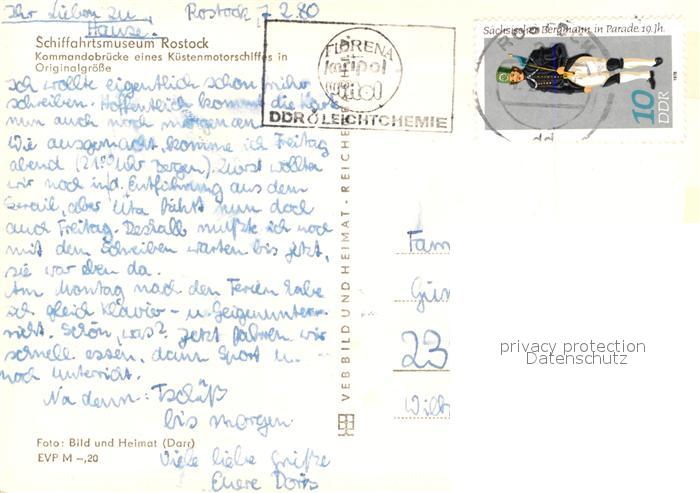 Ihr Lieben zu Rostock, 7.2.80
Hause.
Schiffahrtsmuseum Rostock
Kommandobrücke eines Küstenmotorschiffes in
Originalgröße
Ich wollte eigentlich schon früher
schreiben. Hoffentlich kommt die Karte
nun auch noch morgen an.
Wie ausgemacht, komme ich Freitag
abend (21 Uhr Bergen). Zuerst wollten
wir noch in d. Entführung aus dem
Serail, aber Uta fährt nun doch
auch Freitag. Deshalb mußte ich noch
mit dem Schreiben warten bis jetzt,
sie war eben da.
Am Montag nach den Ferien habe
ich gleich Klavier- u. Geigenunter-
richt. Schön, was? Jetzt fahren wir
schnell essen, dann Sport u.
noch Unterricht.
Na denn: Tschüß
bis morgen
Viele liebe Grüße
Euere Doris
Foto: Bild und Heimat (Darr)
EVP M –,20
VEB BILD UND HEIMAT · REICHE
FLORENA
DDR LEICHTCHEMIE
ROSTOCK
Sächsischer Bergmann in Parade 19. Jh.
10
DDR
1978
Fam
Gün
23
privacy protection
Datenschutz